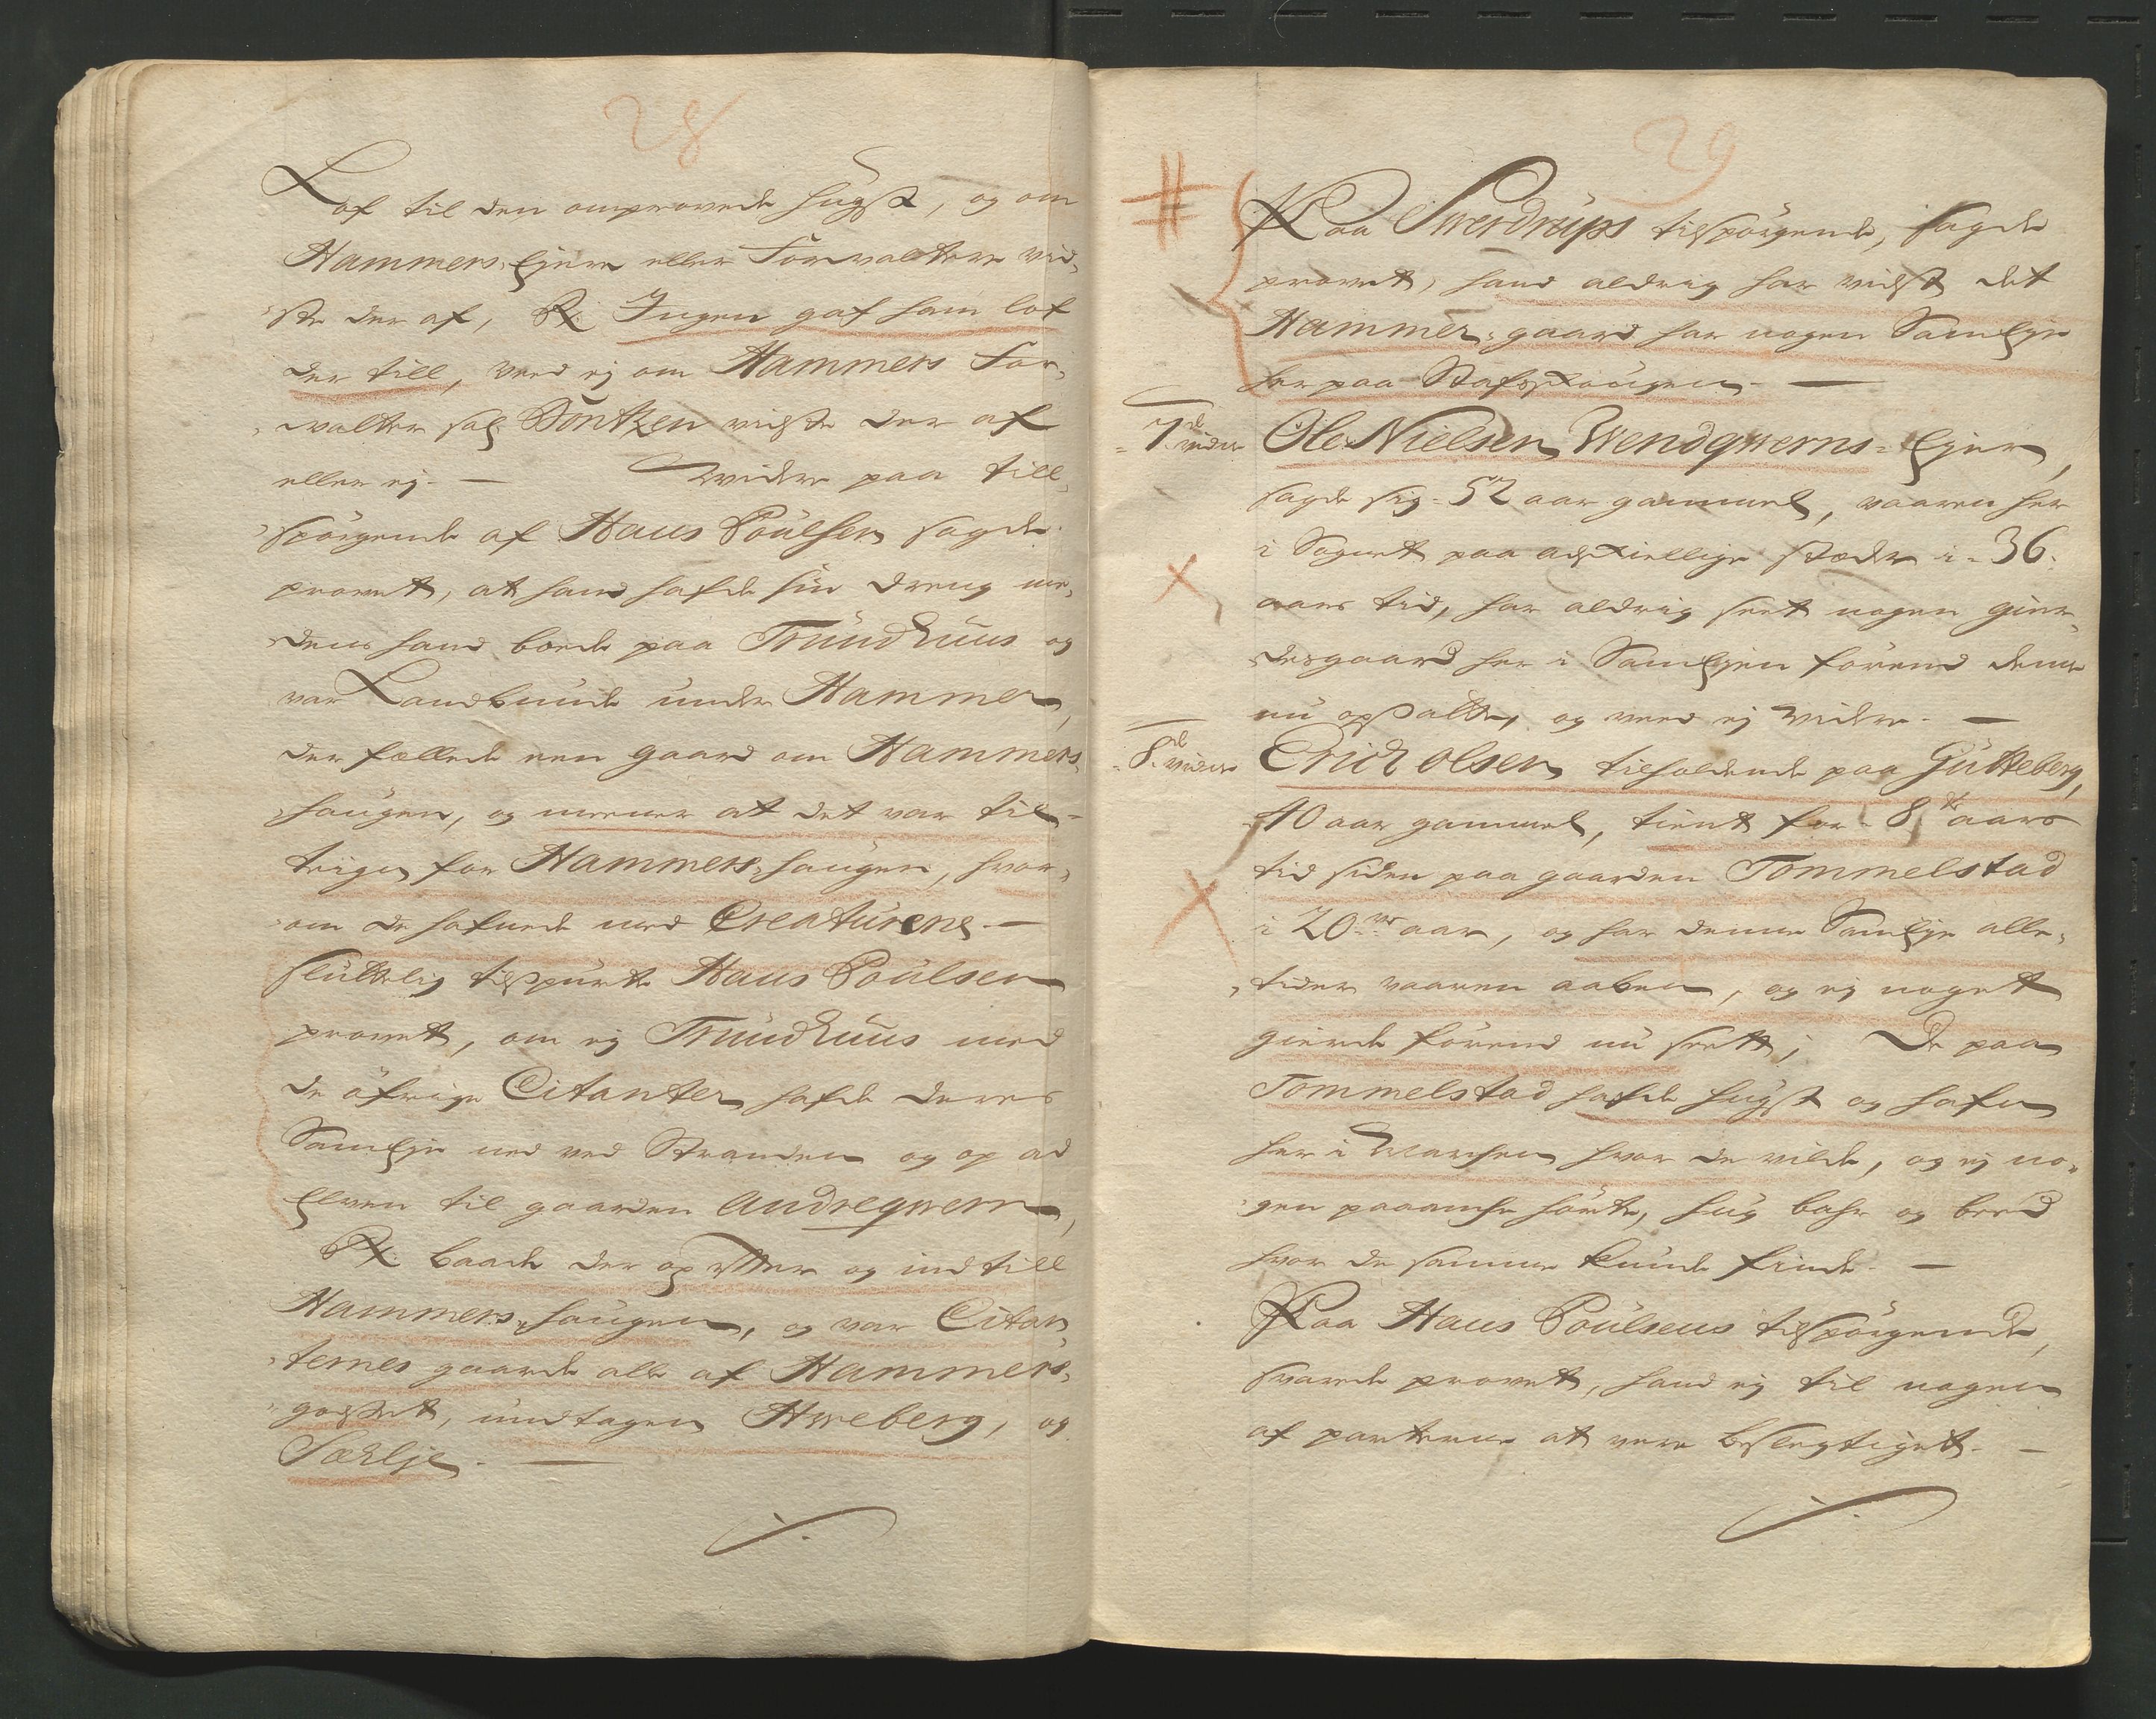 28
Lof til den omprovede hugst, og om
Hammers Ejere eller Forvaltere vid¬
ste der af, Rx Ingen gaf ham lof
der till, veed ej om Hammers For¬
valter sal Böntzen vidste der af
eller ej. — Widere paa till¬
spörgende af Hans Poulsen sagde
provet, at hand hafde sin dreng me¬
dens hand boede paa Trundhuus og
var Landbunde under Hammer,
der fællede een gaard om Hammers
haugen, og meener at det var til¬
trign for Hammers haugen, hvor¬
om de hafnede med Creaturene. —
Sluttelig tilspurte Hans Poulsen
provet, om ej Trundhuus med
de öfrige Citanter hafde deres
Sameje ned ved Stranden og op ad
Elven til gaarden Andreqvern,
Rx baade der op efter og ind till
Hammers haugen, og var Citan¬
ternes gaarde alle af Hammers
godset, undtagen Hweberg, og
Sæhlje. —
29
Paa Swerdrups tilspörgende, sagde
provet, hand aldrig har vidst det
Hammer gaard har nogen Sameje
her paa Stafsskougen. —
7de vidne Ole Nielsen Wendqwerns Ejer,
sagde sig 52 aar gammel, vaaren her
i Sognet paa adskiellige stæder i 36
aars tid, har aldrig seet nogen gier¬
desgaard her i Samejen förend denne
nu opsatte, og veed ej videre. —
8de vidne Erich Olsen tilholdende paa Gutteberg,
40 aar gammel, tient for 8te aars
tid siden paa gaarden Tommelstad
i 20ve aar, og har denne Sameje alle¬
tider vaaren aaben, og ej noget
gierde förend nu seet; De paa
Tommelstad hafde hugst og hafn
her i Marchen hvor de vilde, og ej no¬
gen paaancke hörte, hug bahr og breed
hvor de samme kunde finde. —
Paa Hans Poulsens tilspörgende,
svarede provet, hand ej til nogen
af parterne at vere beslegtiget. —